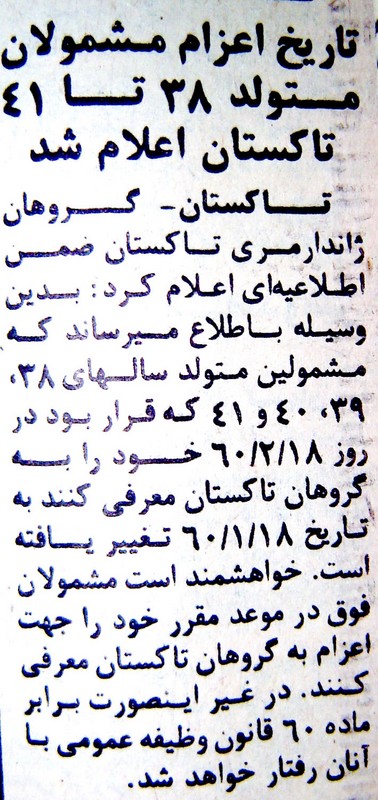 تاریخ اعزام مشمولان
متولد ۳۸ تا ۴۱
تاکستان اعلام شد
تاکستان- گروهان
ژاندارمری تاکستان ضمن
اطلاعیه‌ای اعلام کرد: بدین
وسیله باطلاع میرساند که
مشمولین متولد سالهای ۳۸،
۳۹، ۴۰ و ۴۱ که قرار بود در
روز ۶۰/۲/۱۸ خود را به
گروهان تاکستان معرفی کنند به
تاریخ ۶۰/۱/۱۸ تغییر یافته
است. خواهشمند است مشمولان
فوق در موعد مقرر خود را جهت
اعزام به گروهان تاکستان معرفی
کنند. در غیر اینصورت برابر
ماده ۶۰ قانون وظیفه عمومی با
آنان رفتار خواهد شد.